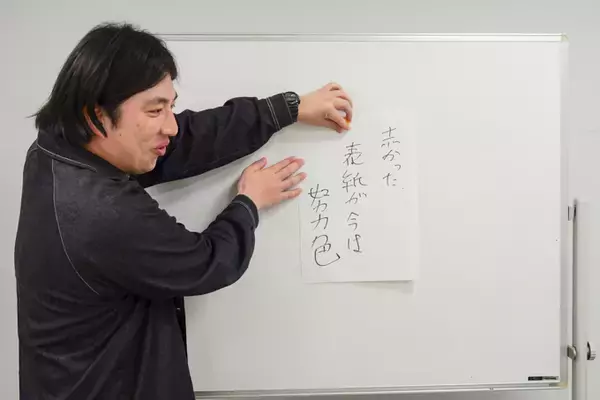 赤かった
表紙が今は
努力色